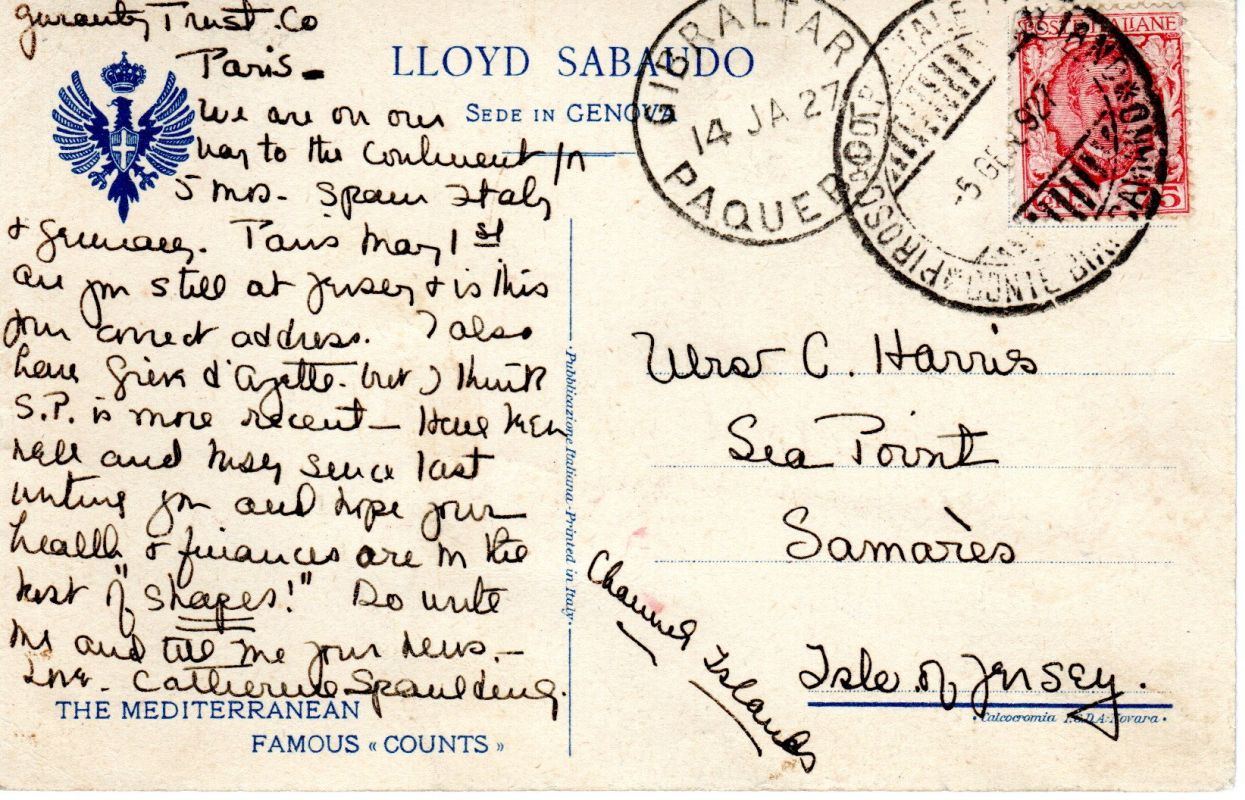 guaranty Trust. Co
Paris -
LLOYD SABAUDO
SEDE IN GENOVA
We are on our
way to the Continent in
5 mos. Spain Italy
& Germany. Paris May 1st
are you still at Jersey & is this
your correct address. I also
have Grève d'Azette - but I think
S.P. is more recent - Have been
well and busy since last
writing you and hope your
health & finances are in the
best of "shapes!" Do write
me and tell me your news. -
Love - Catherine Spaulding.
THE MEDITERRANEAN
FAMOUS « COUNTS »
Pubblicazione Italiana - Printed in Italy.
GIBRALTAR
14 JA 27
PAQUE
PIROSCAFO CONTE BIANCAMANO
POSTE ITALIANE
Mrs C. Harris
Sea Point
Samarès
Isle of Jersey.
Channel Islands
Calcocromia I.G.D.A. Novara